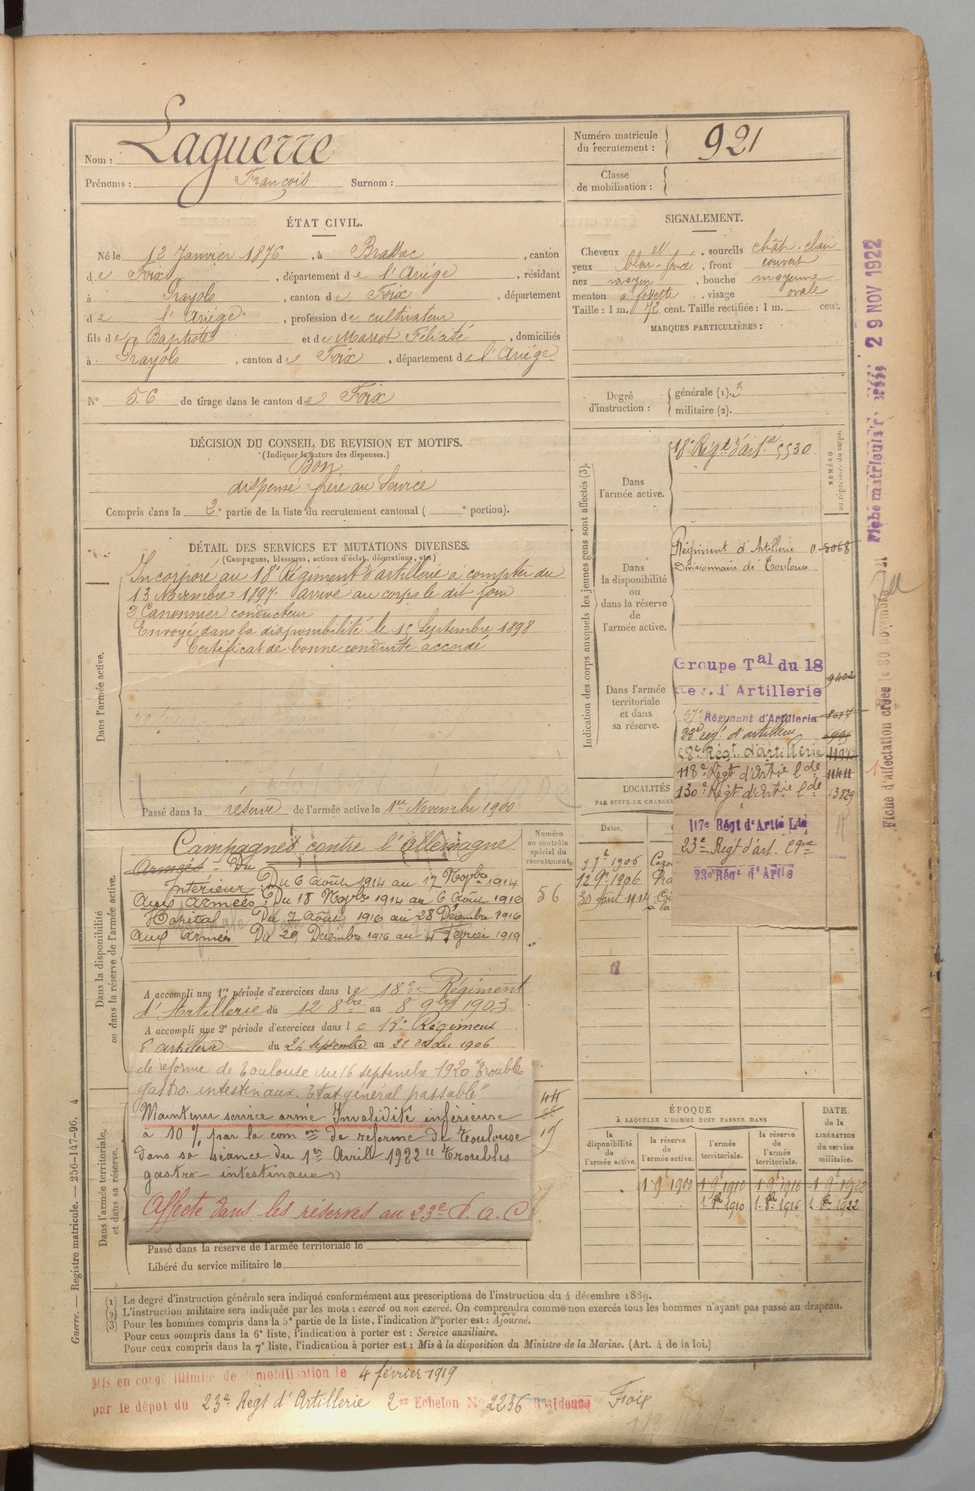 Nom : Laguerre
Prénoms : François Surnom :
Numéro matricule du recrutement : 921
Classe de mobilisation :
ÉTAT CIVIL.
Né le 12 Janvier 1876, à Brassac, canton
de Foix, département de l'Ariège, résidant
à Prayols, canton de Foix, département
de l'Ariège, profession de cultivateur
fils de Baptiste et de Marrot Félicité, domiciliés
à Prayols, canton de Foix, département de l'Ariège
N° 56 de tirage dans le canton de Foix
SIGNALEMENT.
Cheveux et, sourcils chât-clair
yeux, front couvert
nez moyen, bouche moyenne
menton à fossette, visage ovale
Taille : 1 m. 72 cent. Taille rectifiée : 1 m. cent.
MARQUES PARTICULIÈRES :
Degré d'instruction : générale (1). 3
militaire (2).
DÉCISION DU CONSEIL DE REVISION ET MOTIFS.
(Indiquer la nature des dispenses.)
Bon
dispensé frère au Service
Compris dans la 3e partie de la liste du recrutement cantonal ( e portion).
DÉTAIL DES SERVICES ET MUTATIONS DIVERSES.
(Campagnes, blessures, actions d'éclat, décorations, etc.)
Dans l'armée active.
Incorporé au 18e Régiment d'artillerie à compter du
13 Novembre 1897. Arrivé au corps le dit jour
2e Canonnier conducteur
Envoyé dans la disponibilité le 15 Septembre 1898
Certificat de bonne conduite accordé
Passé dans la réserve de l'armée active le 1er Novembre 1900
Indication des corps auxquels les jeunes gens sont affectés (3).
NUMÉRO
Dans l'armée active.
18e Régt d'art. 5530
Dans la disponibilité ou dans la réserve de l'armée active.
Régiment d'Artillerie
Divisionnaire de Toulouse
Dans l'armée territoriale et dans sa réserve.
Groupe Tal du 18
d'Artillerie
Régiment d'Artillerie
33e regt d'artillerie
Régt d'artillerie
118e Régt d'Artie lde
130e Régt d'artie lde 3829
117e Régt d'Artie Lde
23e Regt d'art. Cgne
23e Régt d'Artie
LOCALITÉS
PAR SUITE DE CHANGEM
Dates.
1906
1906
1914
Dans la disponibilité ou dans la réserve de l'armée active.
Campagnes contre l'allemagne
Intérieur : Du 6 Août 1914 au 17 Novbre 1914
Aux Armées : Du 18 Novbre 1914 au 6 Août 1916
Hôpital Du 7 Août 1916 au 28 Décembre 1916
Aux Armées Du 29 Décembre 1916 au 4 Février 1919
Numéro au contrôle spécial du recrutement.
56
A accompli une 1re période d'exercices dans le 18e Régiment
d'Artillerie du 12 8bre au 8 9bre 1903
A accompli une 2e période d'exercices dans le 18e Régiment
d'artillerie du 24 septembre au 21 octobre 1906
de réforme de Toulouse du 16 septembre 1920 "Trouble
gastro intestinaux. Etat général passable"
Maintenu service armé Invalidité inférieure
à 10 %, par la com on de réforme de Toulouse
dans sa séance du 1er Avril 1922 "Troubles
gastro-intestinaux"
Affecté dans les réserves au 23e R.A.C
Dans l'armée territoriale, et dans sa réserve.
Passé dans la réserve de l'armée territoriale le
Libéré du service militaire le
ÉPOQUE
À LAQUELLE L'HOMME DOIT PASSER DANS
la disponibilité de l'armée active.
la réserve de l'armée active.
l'armée territoriale.
la réserve de l'armée territoriale.
DATE de la LIBÉRATION du service militaire.
1 9 1900 1 9 1910 1 9 1916 1 9 1922
1910 1916 1922
(1) Le degré d'instruction générale sera indiqué conformément aux prescriptions de l'instruction du 4 décembre 1889.
(2) L'instruction militaire sera indiquée par les mots : exercé ou non exercé. On comprendra comme non exercés tous les hommes n'ayant pas passé au drapeau.
(3) Pour les hommes compris dans la 5e partie de la liste, l'indication à porter est : Ajourné.
Pour ceux compris dans la 6e liste, l'indication à porter est : Service auxiliaire.
Pour ceux compris dans la 7e liste, l'indication à porter est : Mis à la disposition du Ministre de la Marine. (Art. 4 de la loi.)
Mis en congé illimité de démobilisation le 4 février 1919
par le dépôt du 23e Régt d'Artillerie 2er Echelon N° 2236 Résidence Foix
Guerre. — Registre matricule. — 256-147-96. 4
Fiche matricule 29 NOV 1922
Fiche d'affectation créée le 30 novembre